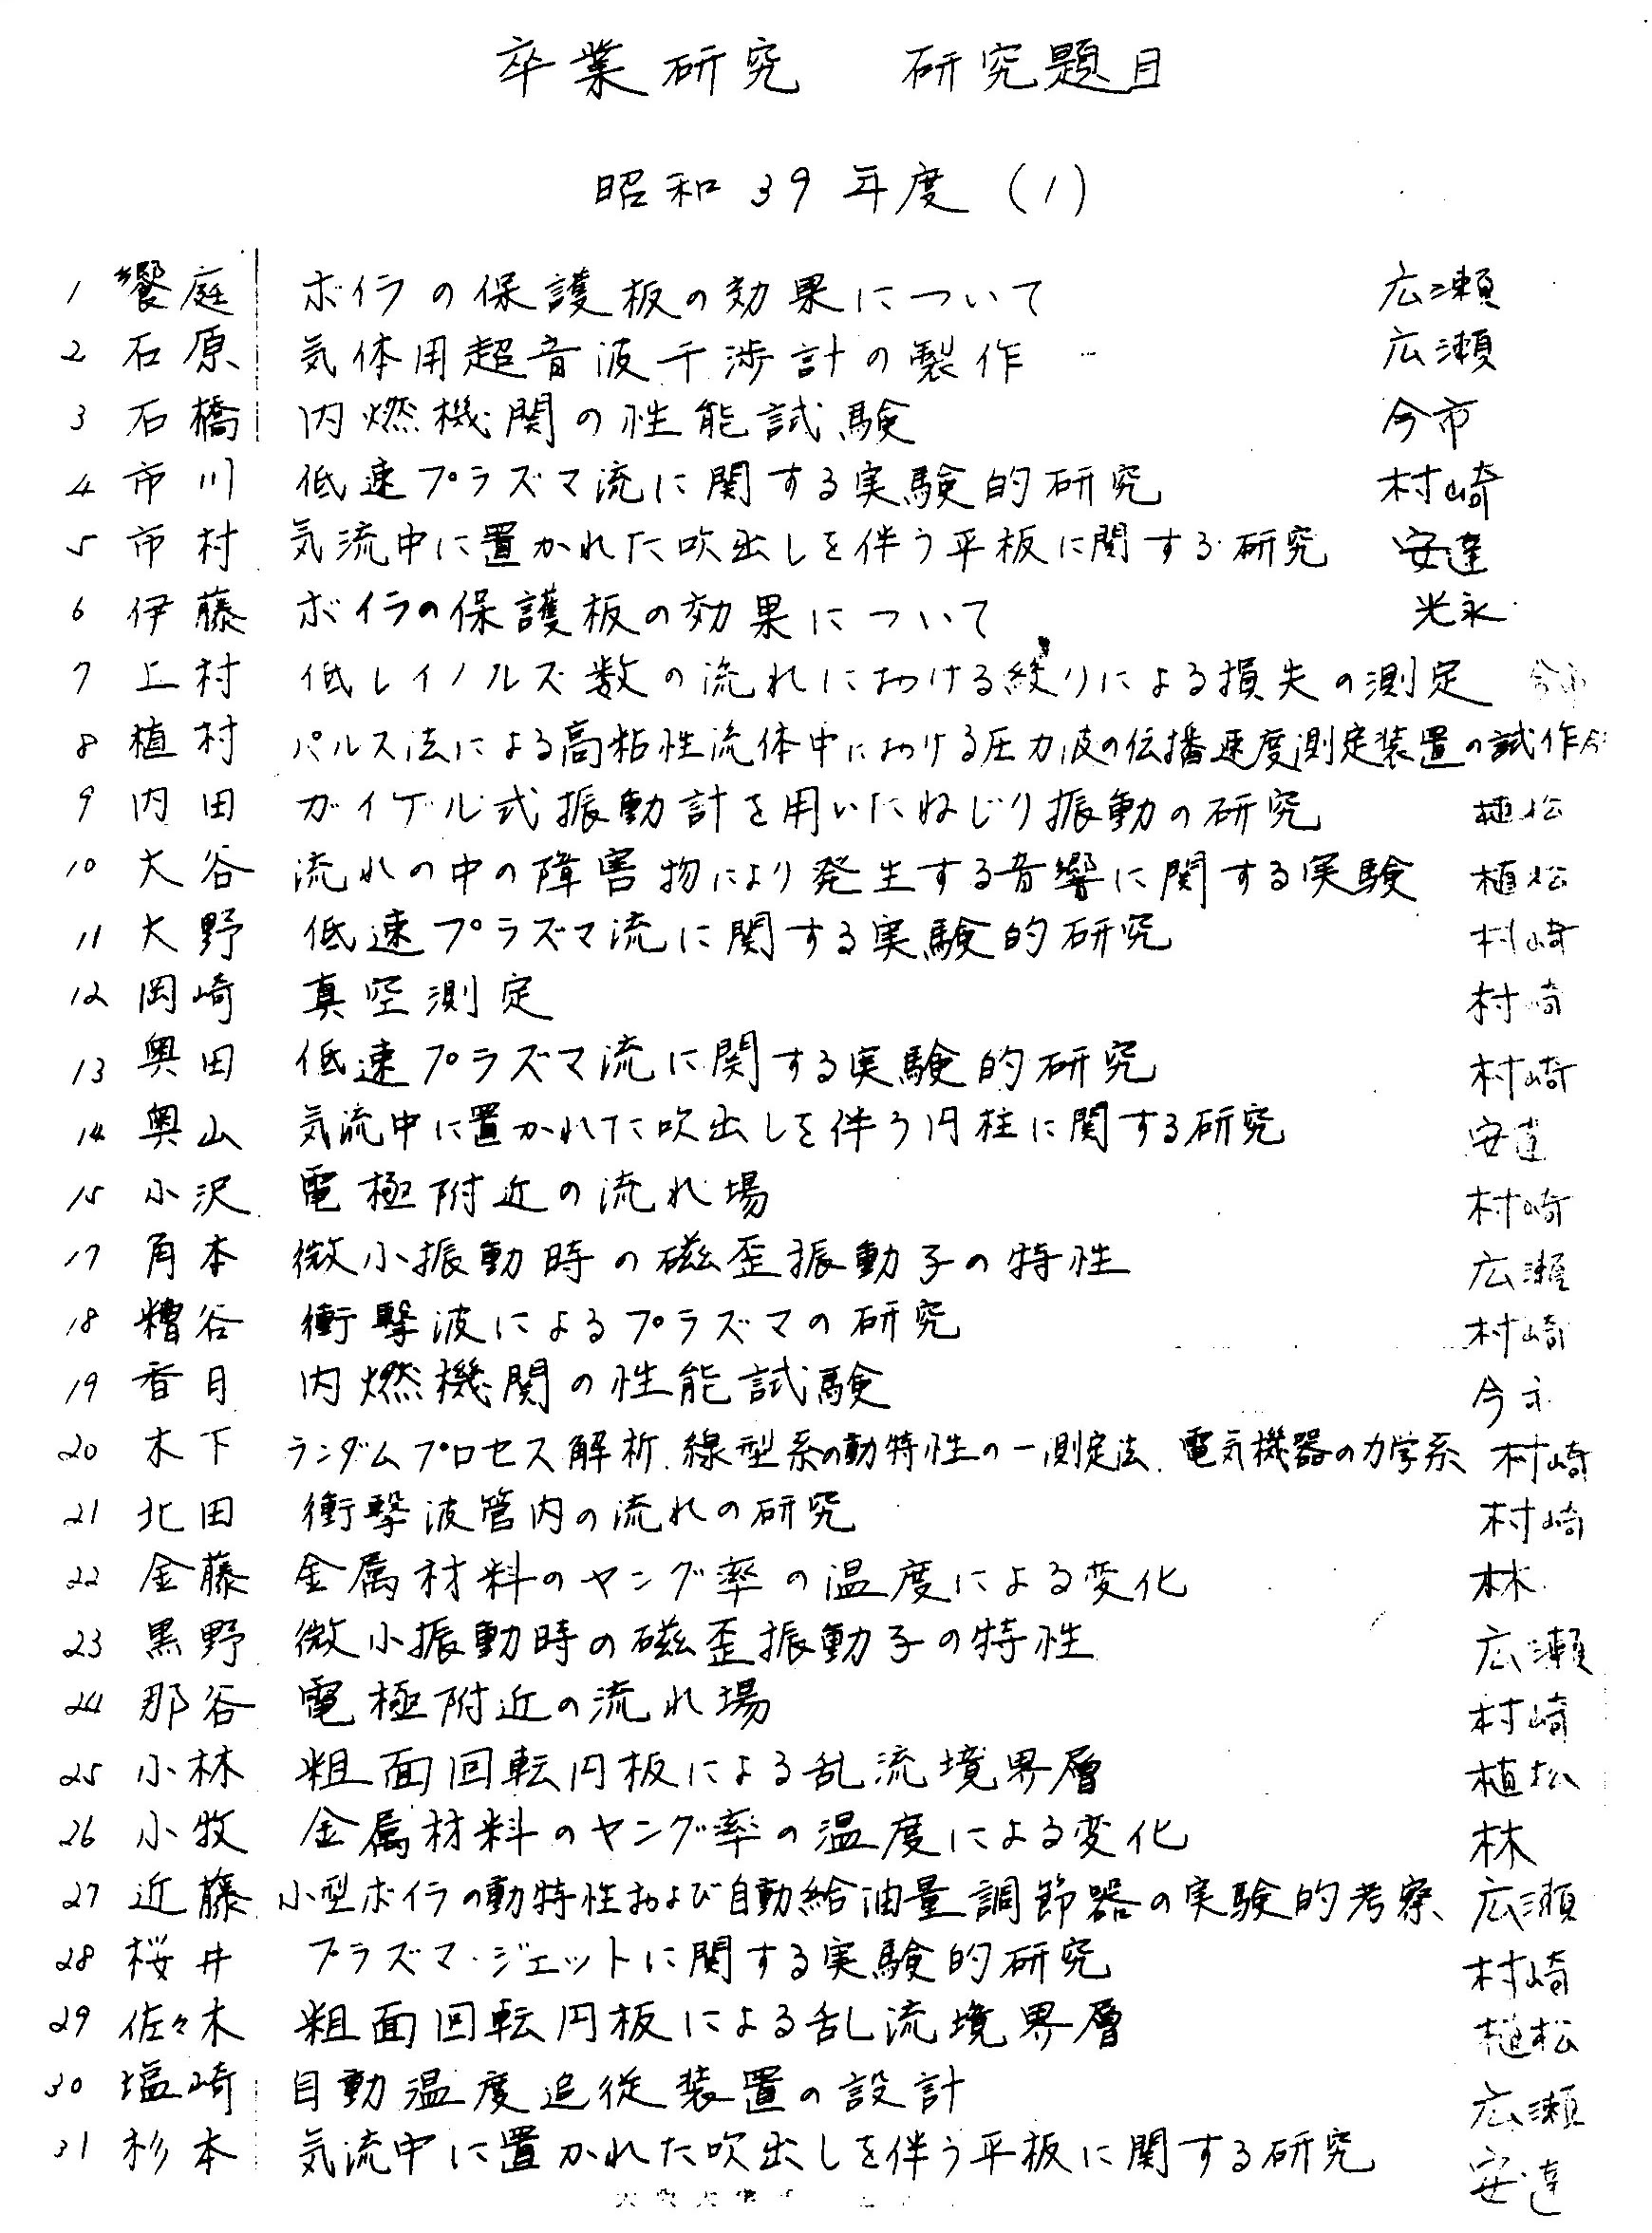 卒業研究 研究題目
昭和39年度 (1)
1 饗庭 ボイラの保護板の効果について 広瀬
2 石原 気体用超音波干渉計の製作 広瀬
3 石橋 内燃機関の性能試験 今市
4 市川 低速プラズマ流に関する実験的研究 村崎
5 市村 気流中に置かれた吹出しを伴う平板に関する研究 安達
6 伊藤 ボイラの保護板の効果について 光永
7 上村 低レイノルズ数の流れにおける絞りによる損失の測定 今市
8 植村 パルス法による高粘性流体中における圧力波の伝播速度測定装置の試作
9 内田 ガイゲル式振動計を用いたねじり振動の研究 植松
10 大谷 流れの中の障害物により発生する音響に関する実験 植松
11 大野 低速プラズマ流に関する実験的研究 村崎
12 岡崎 真空測定 村崎
13 奥田 低速プラズマ流に関する実験的研究 村崎
14 奥山 気流中に置かれた吹出しを伴う円柱に関する研究 安達
15 小沢 電極附近の流れ場 村崎
17 角本 微小振動時の磁歪振動子の特性 広瀬
18 糟谷 衝撃波によるプラズマの研究 村崎
19 香月 内燃機関の性能試験 今市
20 木下 ランダムプロセス解析、線型系の動特性の一測定法、電気機器の力学系 村崎
21 北田 衝撃波管内の流れの研究 村崎
22 金藤 金属材料のヤング率の温度による変化 林
23 黒野 微小振動時の磁歪振動子の特性 広瀬
24 那谷 電極附近の流れ場 村崎
25 小林 粗面回転円板による乱流境界層 植松
26 小牧 金属材料のヤング率の温度による変化 林
27 近藤 小型ボイラの動特性および自動給油量調節器の実験的考察 広瀬
28 桜井 プラズマ・ジェットに関する実験的研究 村崎
29 佐々木 粗面回転円板による乱流境界層 植松
30 塩崎 自動温度追従装置の設計 広瀬
31 杉本 気流中に置かれた吹出しを伴う平板に関する研究 安達